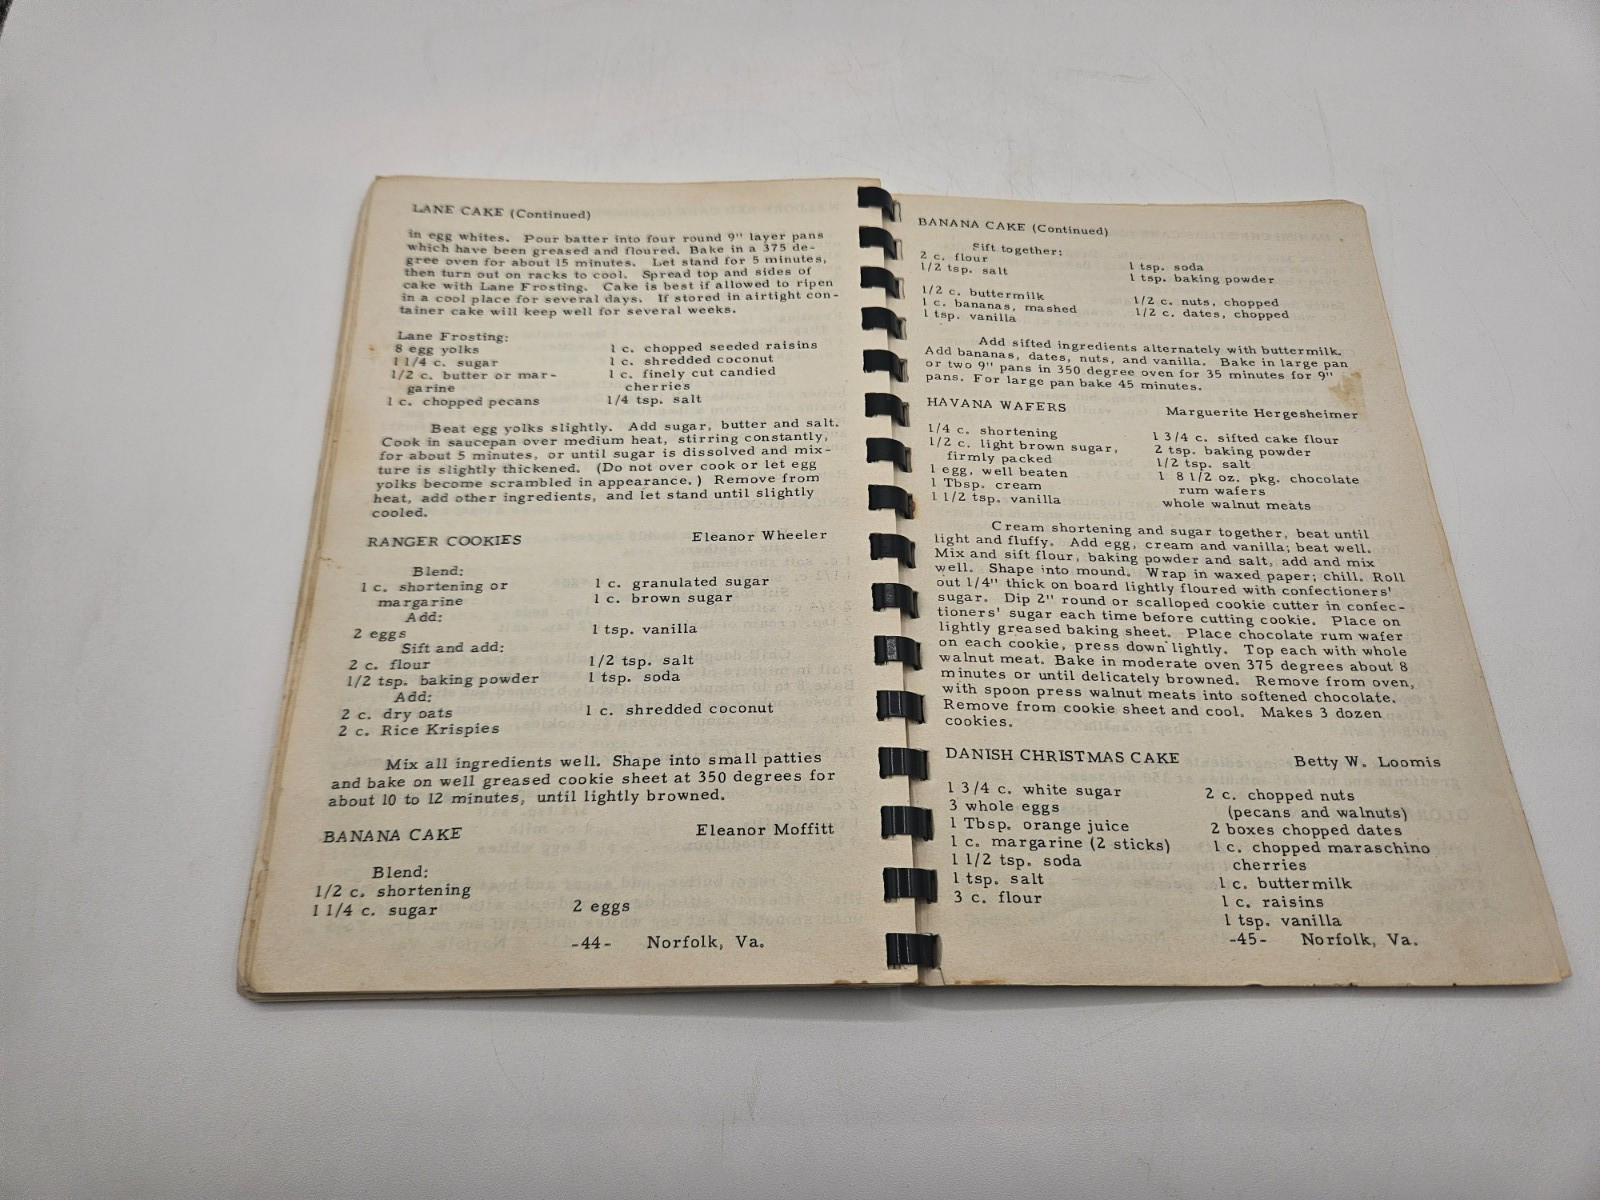 LANE CAKE (Continued)
in egg whites. Pour batter into four round 9" layer pans
which have been greased and floured. Bake in a 375 de-
gree oven for about 15 minutes. Let stand for 5 minutes,
then turn out on racks to cool. Spread top and sides of
cake with Lane Frosting. Cake is best if allowed to ripen
in a cool place for several days. If stored in airtight con-
tainer cake will keep well for several weeks.
Lane Frosting:
8 egg yolks 1 c. chopped seeded raisins
1 1/4 c. sugar 1 c. shredded coconut
1/2 c. butter or mar- 1 c. finely cut candied
garine cherries
1 c. chopped pecans 1/4 tsp. salt
Beat egg yolks slightly. Add sugar, butter and salt.
Cook in saucepan over medium heat, stirring constantly,
for about 5 minutes, or until sugar is dissolved and mix-
ture is slightly thickened. (Do not over cook or let egg
yolks become scrambled in appearance.) Remove from
heat, add other ingredients, and let stand until slightly
cooled.
RANGER COOKIES Eleanor Wheeler
Blend:
1 c. shortening or 1 c. granulated sugar
margarine 1 c. brown sugar
Add:
2 eggs 1 tsp. vanilla
Sift and add:
2 c. flour 1/2 tsp. salt
1/2 tsp. baking powder 1 tsp. soda
Add:
2 c. dry oats 1 c. shredded coconut
2 c. Rice Krispies
Mix all ingredients well. Shape into small patties
and bake on well greased cookie sheet at 350 degrees for
about 10 to 12 minutes, until lightly browned.
BANANA CAKE Eleanor Moffitt
Blend:
1/2 c. shortening
1 1/4 c. sugar 2 eggs
-44- Norfolk, Va.
BANANA CAKE (Continued)
Sift together:
2 c. flour 1 tsp. soda
1/2 tsp. salt 1 tsp. baking powder
1/2 c. buttermilk 1/2 c. nuts, chopped
1 c. bananas, mashed 1/2 c. dates, chopped
1 tsp. vanilla
Add sifted ingredients alternately with buttermilk.
Add bananas, dates, nuts, and vanilla. Bake in large pan
or two 9" pans in 350 degree oven for 35 minutes for 9"
pans. For large pan bake 45 minutes.
HAVANA WAFERS Marguerite Hergesheimer
1/4 c. shortening 1 3/4 c. sifted cake flour
1/2 c. light brown sugar, 2 tsp. baking powder
firmly packed 1/2 tsp. salt
1 egg, well beaten 1 8 1/2 oz. pkg. chocolate
1 Tbsp. cream rum wafers
1 1/2 tsp. vanilla whole walnut meats
Cream shortening and sugar together, beat until
light and fluffy. Add egg, cream and vanilla; beat well.
Mix and sift flour, baking powder and salt, add and mix
well. Shape into mound. Wrap in waxed paper; chill. Roll
out 1/4" thick on board lightly floured with confectioners'
sugar. Dip 2" round or scalloped cookie cutter in confec-
tioners' sugar each time before cutting cookie. Place on
lightly greased baking sheet. Place chocolate rum wafer
on each cookie, press down lightly. Top each with whole
walnut meat. Bake in moderate oven 375 degrees about 8
minutes or until delicately browned. Remove from oven,
with spoon press walnut meats into softened chocolate.
Remove from cookie sheet and cool. Makes 3 dozen
cookies.
DANISH CHRISTMAS CAKE Betty W. Loomis
1 3/4 c. white sugar 2 c. chopped nuts
3 whole eggs (pecans and walnuts)
1 Tbsp. orange juice 2 boxes chopped dates
1 c. margarine (2 sticks) 1 c. chopped maraschino
1 1/2 tsp. soda cherries
1 tsp. salt 1 c. buttermilk
3 c. flour 1 c. raisins
1 tsp. vanilla
-45- Norfolk, Va.